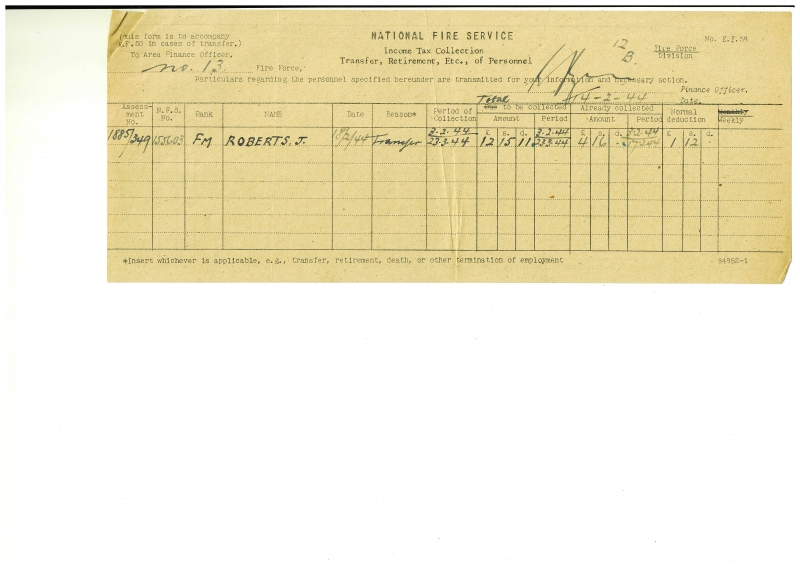 (This form is to accompany
E.F.50 in cases of transfer.)
NATIONAL FIRE SERVICE
No. E.F.58
To Area Finance Officer,
Income Tax Collection
12
B.
Fire Force
Division
no. 13. Fire Force.
Transfer, Retirement, Etc., of Personnel
Particulars regarding the personnel specified hereunder are transmitted for your information and necessary action.
Finance Officer.
14-2-44 Date.
Assess-
ment
No.
N.F.S.
No.
Rank
NAME
Date
Reason*
Period of
Collection
Total
to be collected
Amount
Period
Already collected
Amount
Period
Normal
deduction
Monthly
Weekly
£ s. d. £ s. d. £ s. d.
1885/349 155603 FM ROBERTS. J. 18/2/44 Transfer 3.2.44 23.3.44 12 15 11 3.2.44 23.3.44 4 16 - 3.2.44 1 12 -
*Insert whichever is applicable, e.g., transfer, retirement, death, or other termination of employment